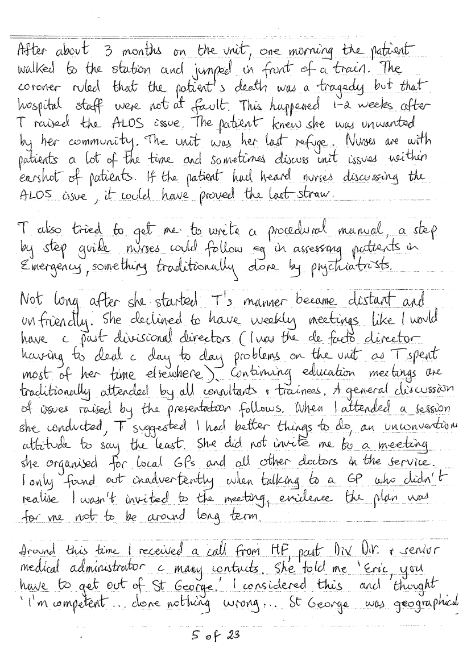 After about 3 months on the unit, one morning the patient
walked to the station and jumped in front of a train. The
coroner ruled that the patient's death was a tragedy but that
hospital staff were not at fault. This happened 1-2 weeks after
T raised the ALOS issue. The patient knew she was unwanted
by her community. The unit was her last refuge. Nurses are with
patients a lot of the time and sometimes discuss unit issues within
earshot of patients. If the patient had heard nurses discussing the
ALOS issue, it could have proved the last straw.
T also tried to get me to write a procedural manual, a step
by step guide nurses could follow eg in assessing patients in
Emergency, something traditionally done by psychiatrists.
Not long after she started T's manner became distant and
unfriendly. She declined to have weekly meetings like I would
have c past divisional directors (I was the de facto director
having to deal c day to day problems on the unit as T spent
most of her time elsewhere). Continuing education meetings are
traditionally attended by all consultants + trainees. A general discussion
of issues raised by the presentation follows. When I attended a session
she conducted, T suggested I had better things to do, an unconventional
attitude to say the least. She did not invite me to a meeting
she organised for local GPs and all other doctors in the service.
I only found out inadvertently when talking to a GP who didn't
realise I wasn't invited to the meeting, evidence the plan was
for me not to be around long term.
Around this time I received a call from HF, past Div Dir. + senior
medical administrator c many contacts. She told me 'Eric, you
have to get out of St George.' I considered this and thought
'I'm competent... done nothing wrong... St George was geographical
5 of 23